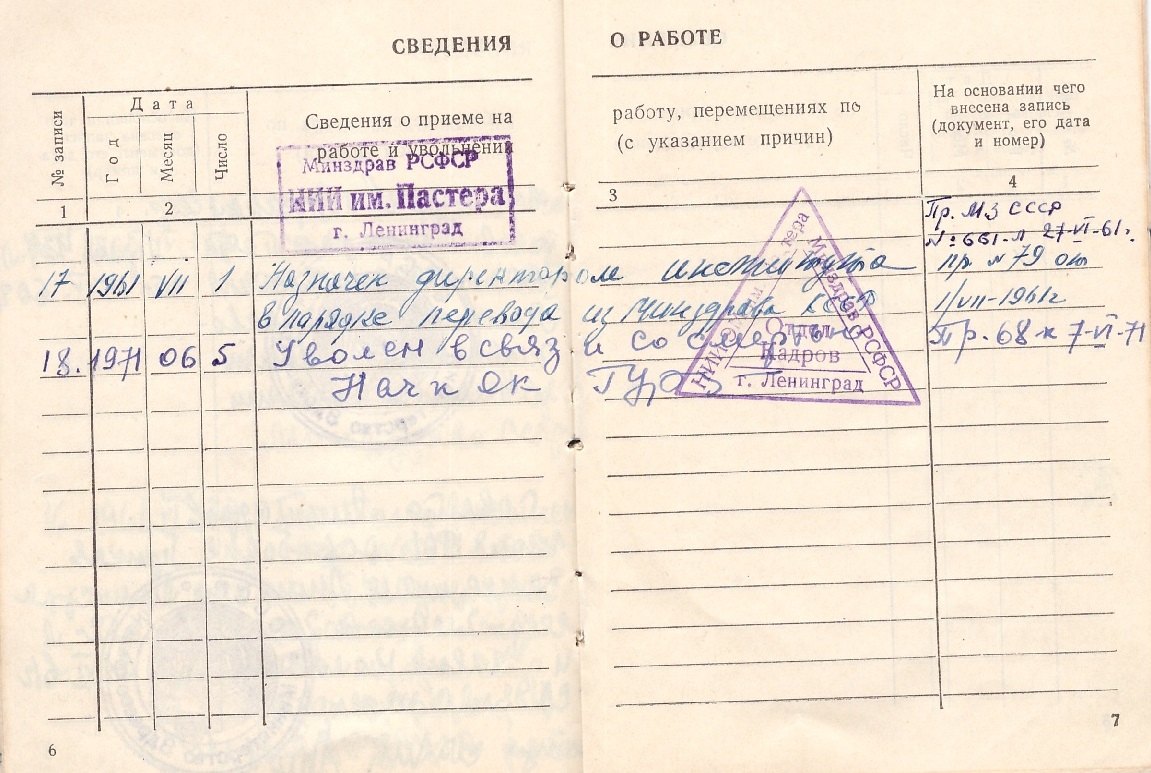 СВЕДЕНИЯ О РАБОТЕ
№ записи
Дата
Год
Месяц
Число
Сведения о приеме на работу, перемещениях по
работе и увольнении (с указанием причин)
На основании чего
внесена запись
(документ, его дата
и номер)
1 2 3 4
Минздрав РСФСР
НИИ им. Пастера
г. Ленинград
Пр. МЗ СССР
№ 661-Л 27-VI-61г.
17 1961 VII 1 Назначен директором института пр N 79 от
в порядке перевода из Минздрава 1/VII-1961г
18. 1971 06 5 Уволен в связи со смертью Пр. 68-к 7-VI-71
Нач к ОК
Минздрав РСФСР
НИИ
Отдел
кадров
г. Ленинград
6
7